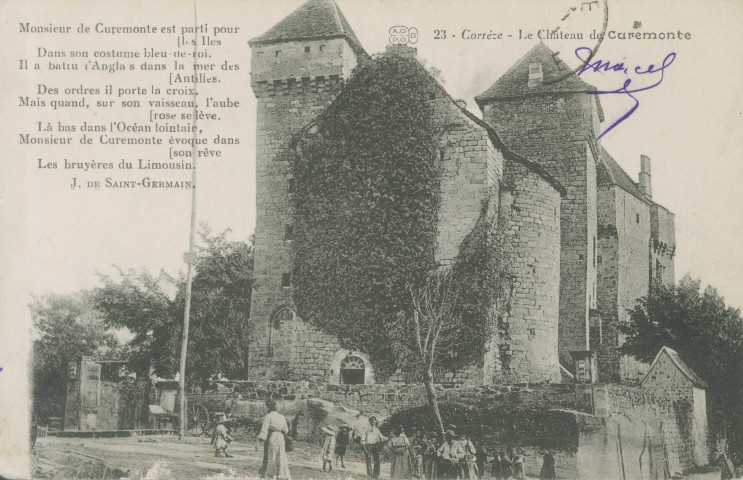 Monsieur de Curemonte est parti pour
[les Iles
Dans son costume bleu-de-roi.
Il a battu l'Anglais dans la mer des
[Antilles.
Des ordres il porte la croix.
Mais quand, sur son vaisseau, l'aube
[rose se lève.
Là bas dans l'Océan lointain,
Monsieur de Curemonte évoque dans
[son rêve
Les bruyères du Limousin.
J. DE SAINT-GERMAIN.
23 - Corrèze - Le Château de Curemonte
Marcel